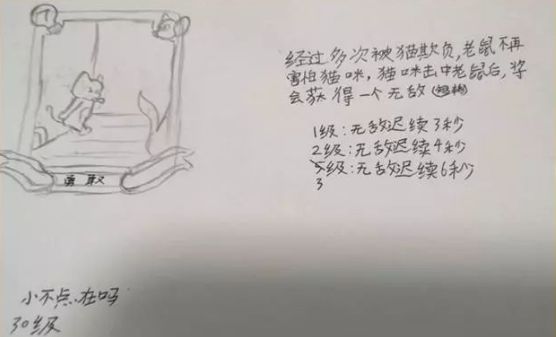 勇敢
经过多次被猫欺负,老鼠不再
害怕猫咪,猫咪击中老鼠后,将
会获得一个无敌
1级:无敌迟续3秒
2级:无敌迟续4秒
3级:无敌迟续6秒
小不点.在吗
30级